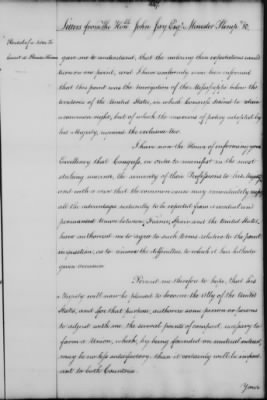 Letters from The Honble John Jay Esqr. Minister Plenipo &c
gave me to understand, that the entering this expectations would
turn on one point, and I have uniformly been informed
that this point was the Navigation of the Mississippi below the
territories of the United States, in which Congress desired to retain
a common right, but of which the maxims of policy adopted by
his Majesty, required the exclusive use.
I have now the Honor of informing your
Excellency that Congress, in order to manifest in the most
striking manner, the sincerity of their Professions to his Majesty
and with a view that the common cause may immediately reap
all the advantages naturally to be expected from a cordial and
permanent Union between France, Spain and the United States,
have authorized me to agree to such terms relative to the point
in question, as to remove the difficulties to which it has hitherto
given occasion
Permit me therefore to hope, that his
Majesty will now be pleased to become the ally of the United
States, and for that purpose, authorize some person or persons
to adjust with me the several points of compact necessary to
form a Union, which, by being founded on mutual interest,
may be no less satisfactory, than it certainly will be import
ant to both Countries.
Your